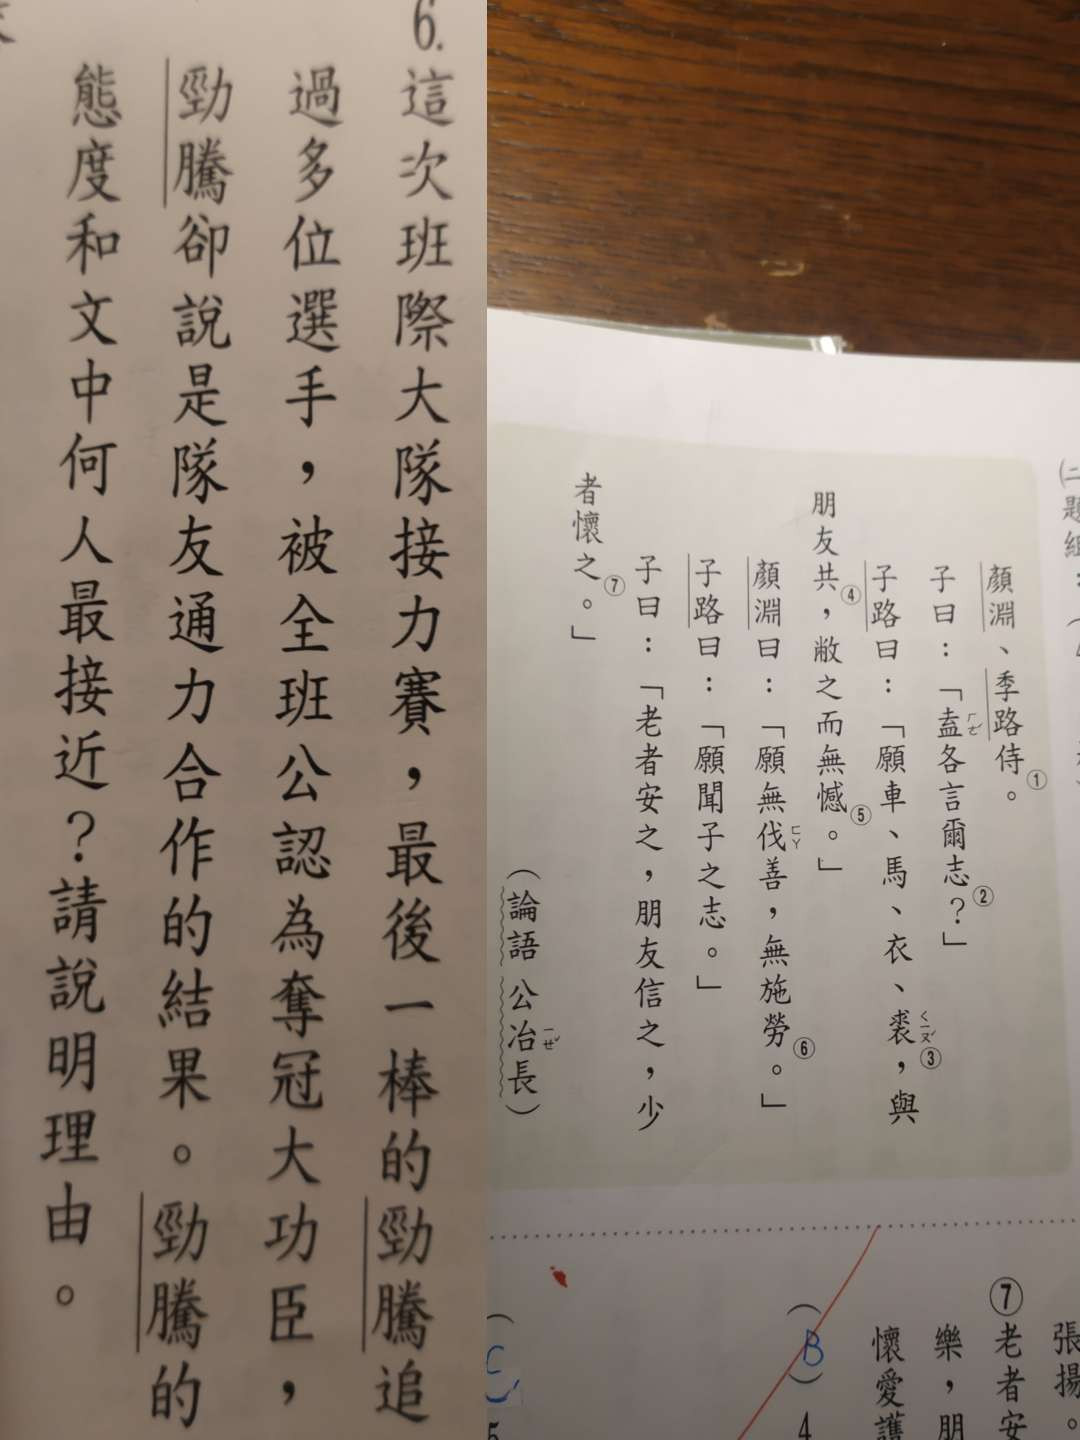 6.這次班際大隊接力賽，最後一棒的勁騰追
過多位選手，被全班公認為奪冠大功臣，
勁騰卻說是隊友通力合作的結果。勁騰的
態度和文中何人最接近？請說明理由。
㈡題組：
顏淵、季路侍①。
子曰：「盍ㄏㄜˊ各言爾志②？」
子路曰：「願車、馬、衣、裘ㄑㄧㄡˊ③，與
朋友共④，敝之而無憾⑤。」
顏淵曰：「願無伐ㄈㄚ善，無施勞⑥。」
子路曰：「願聞子之志。」
子曰：「老者安之，朋友信之，少
者懷之⑦。」
（論語 公冶ㄧㄝˇ長）
張揚。
⑦老者安
樂，朋
懷愛護
（B）4
（C）5